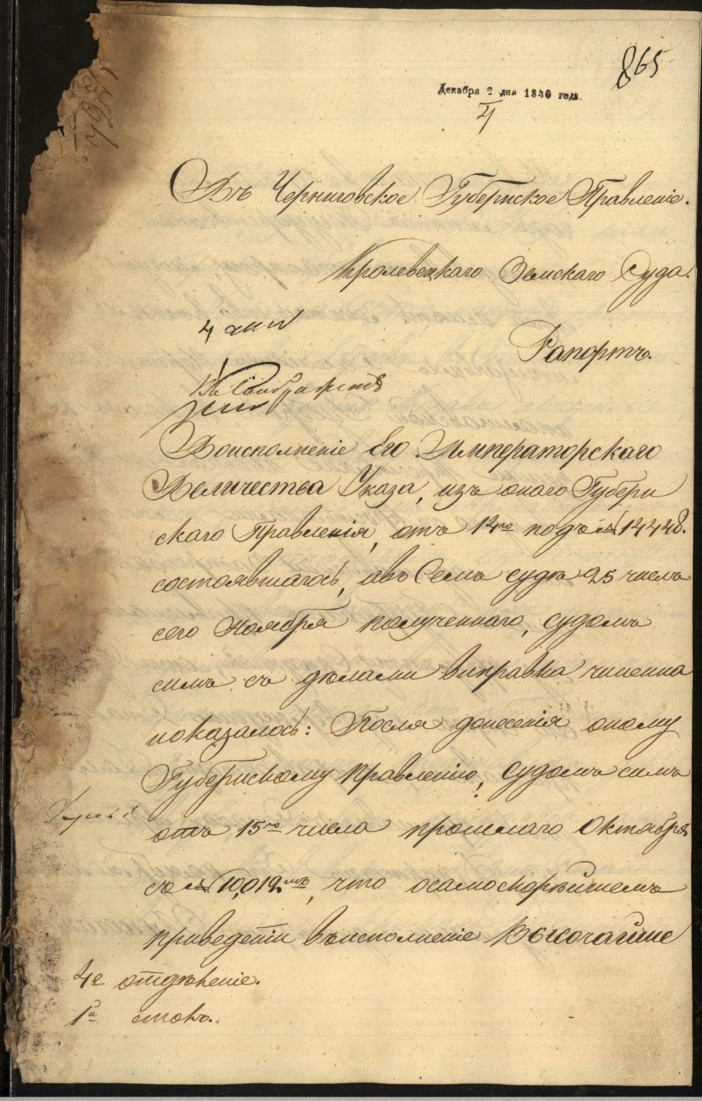 865
Декабря 2 дня 1840 года.
4
Въ Черниговское Губернское Правленіе.
Кролевецкаго Земскаго Суда.
Рапортъ.
Воисполненіе Его Императорскаго
Величества Указа, изъ онаго Губерн
скаго Правленія, отъ 14го подъ № 14448.
состоявшагось, авъ Семъ судѣ 25 числа
сего Ноября полученнаго, судомъ
симъ съ дѣлами виправка чиненна
показалось: Посля донесенія оному
Губернскому Правленію, судомъ симъ
отъ 15го числа прошлаго Октября
съ № 10,019мъ, что осамоскорѣйшемъ
приведеніи въисполненіе Высочайше
4е отдѣленіе.
1й столъ.